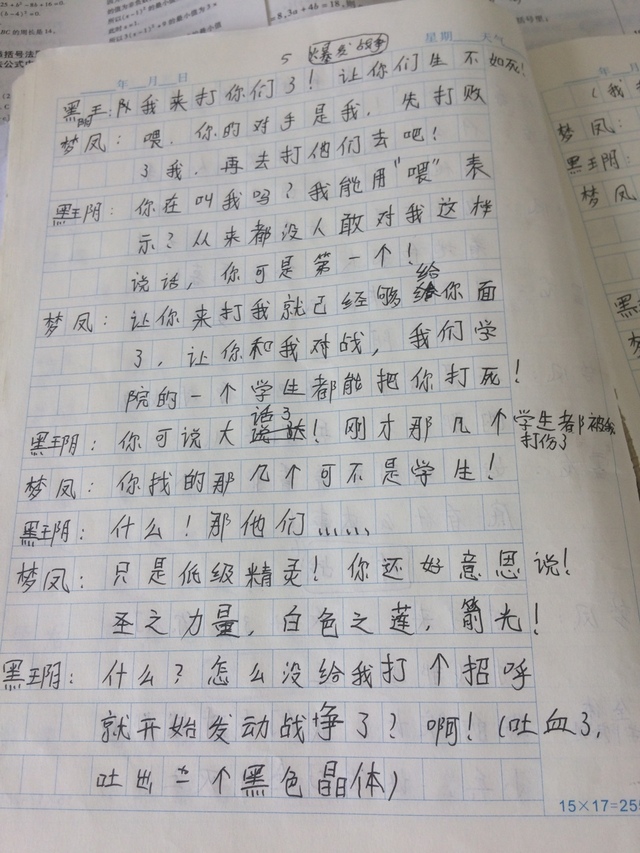 5 爆发战争
星期 天气
年 月 日
黑王阴: 队我来打你们了！让你们生不如死！
梦凤: 喂，你的对手是我，先打败
了我，再去打他们去吧！
黑王阴: 你在叫我吗？我能用"喂"表
示？从来都没人敢对我这样
说话，你可是第一个！
梦凤: 让你来打我就已经够给你面
了，让你和我对战，我们学
院的一个学生都能把你打死！
黑王阴: 你可说大话了！刚才那几个学生都被我打伤了
梦凤: 你找的那几个可不是学生！
黑王阴: 什么！那他们，，，，，，
梦凤: 只是低级精灵！你还好意思说！
圣之力量，白色之莲，箭光！
黑王阴: 什么？怎么没给我打个招呼
就开始发动战争了？啊！(吐血了，
吐出一个黑色晶体)
15×17=255